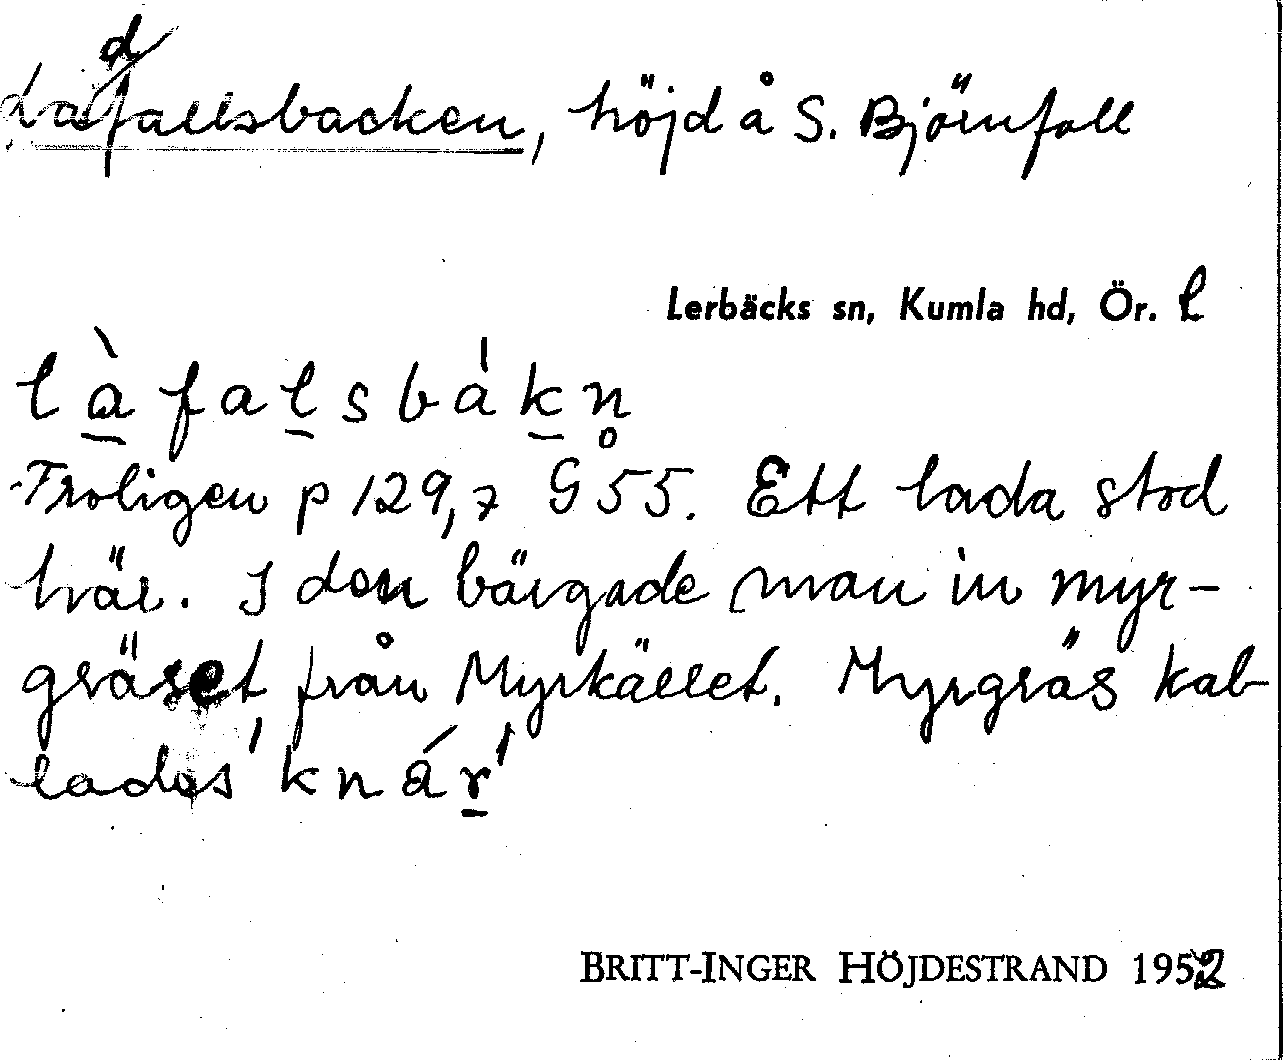 Ladfallsbacken, höjd å S. Björnfall
Lerbäcks sn, Kumla hd, Ör. l
là̱faḻsbáḵn̥
Troligen p 129,7 G 55. Ett lada stod
här. I den bärgade man in myr-
gräset från Myrkället. Myrgräs kal-
lades 'knáṟ'
BRITT-INGER HÖJDESTRAND 1952